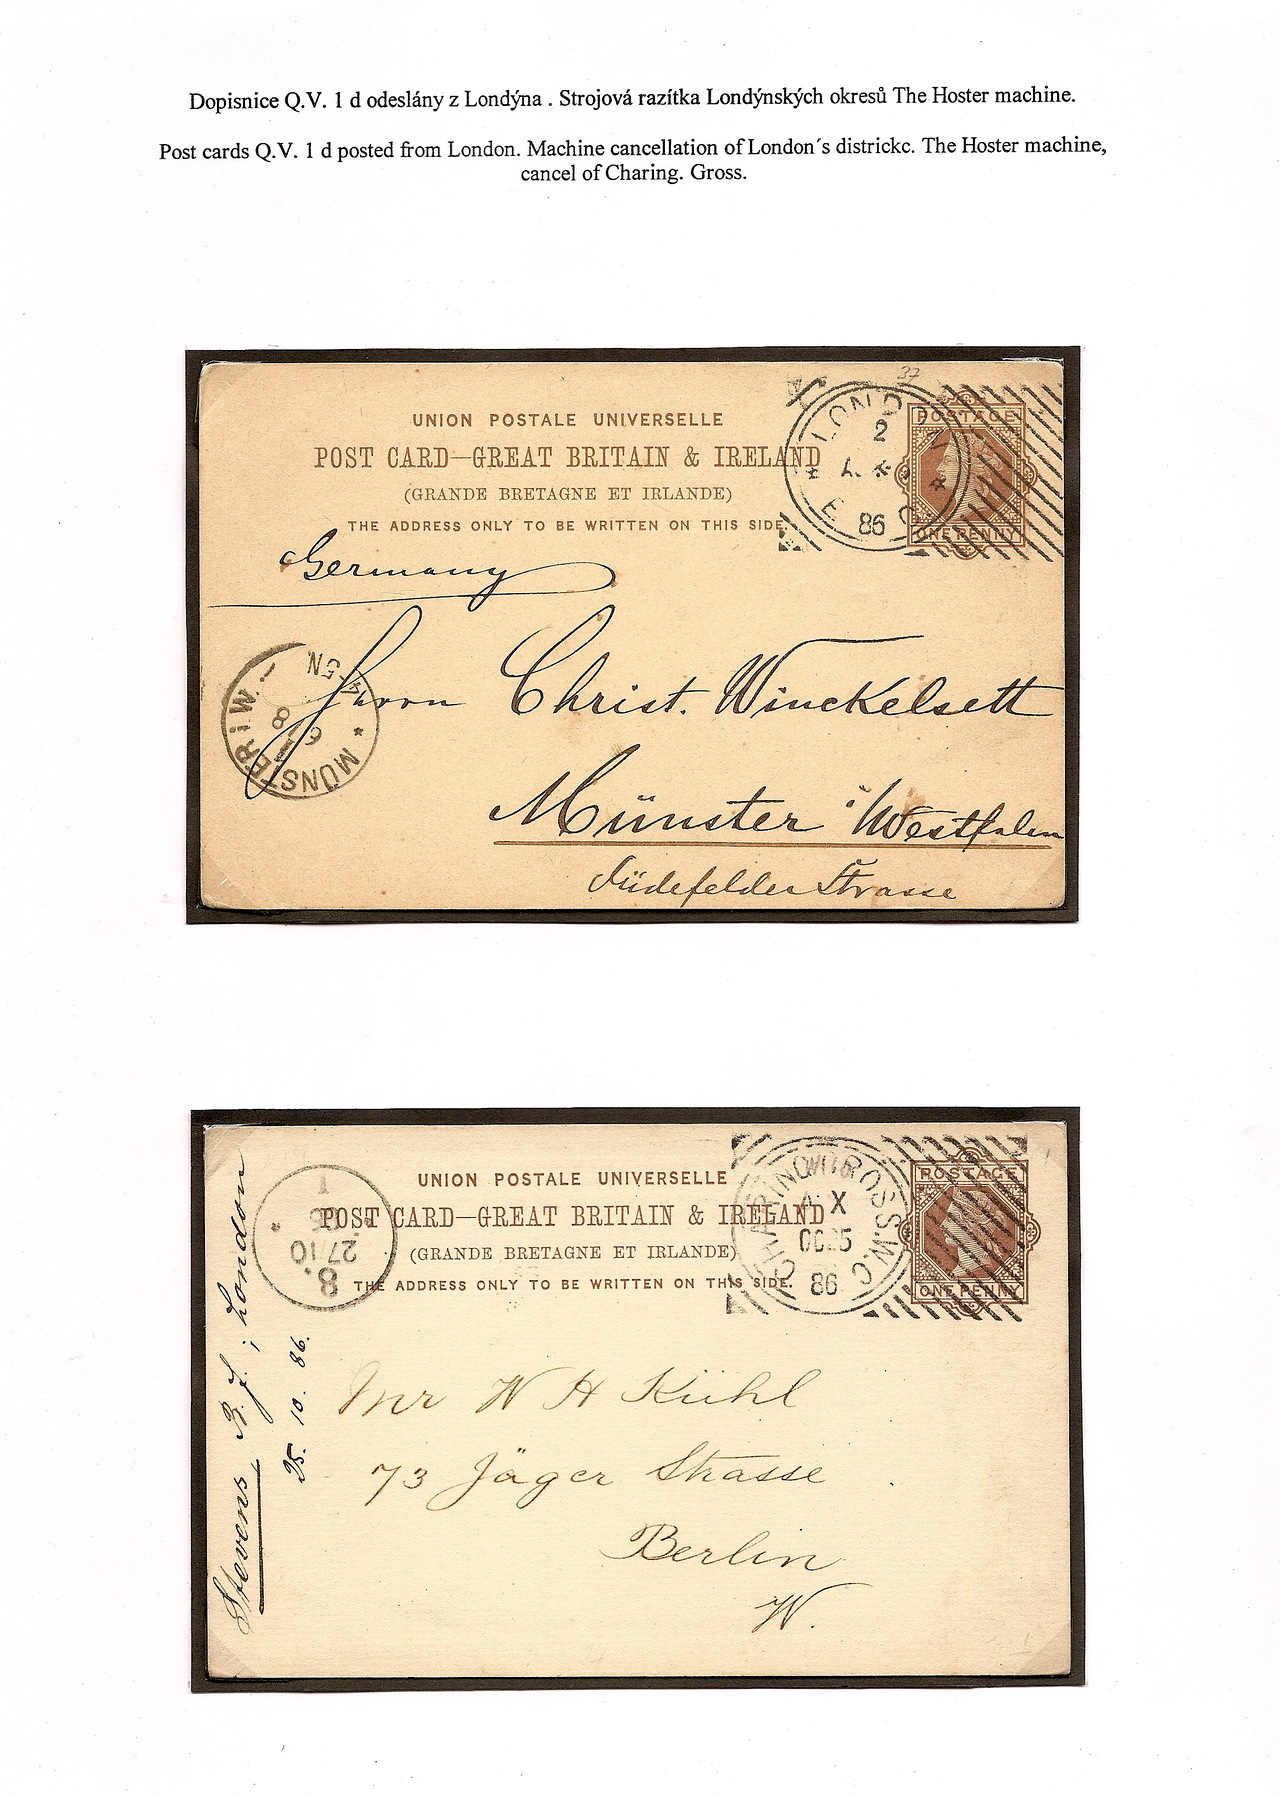 Dopisnice Q.V. 1 d odeslány z Londýna . Strojová razítka Londýnských okresů The Hoster machine.
Post cards Q.V. 1 d posted from London. Machine cancellation of London´s districkc. The Hoster machine,
cancel of Charing. Gross.
37
UNION POSTALE UNIVERSELLE
POST CARD—GREAT BRITAIN & IRELAND
(GRANDE BRETAGNE ET IRLANDE)
THE ADDRESS ONLY TO BE WRITTEN ON THIS SIDE.
LOND
2
86
E C
POSTAGE
ONE PENNY
Germany
Herrn Christ. Winckelsett
Münster i/Westfalen
Lüdefelder Strasse
* MÜNSTER i.W. 1
6 8
4-5N.
UNION POSTALE UNIVERSELLE
POST CARD—GREAT BRITAIN & IRELAND
(GRANDE BRETAGNE ET IRLANDE)
THE ADDRESS ONLY TO BE WRITTEN ON THIS SIDE.
CHARING CROSS.W.C
X
OC25
86
POSTAGE
ONE PENNY
8.
27/10
86
Stevens ; London
25. 10. 86.
Mr W H Kühl
73 Jäger Strasse
Berlin
W.